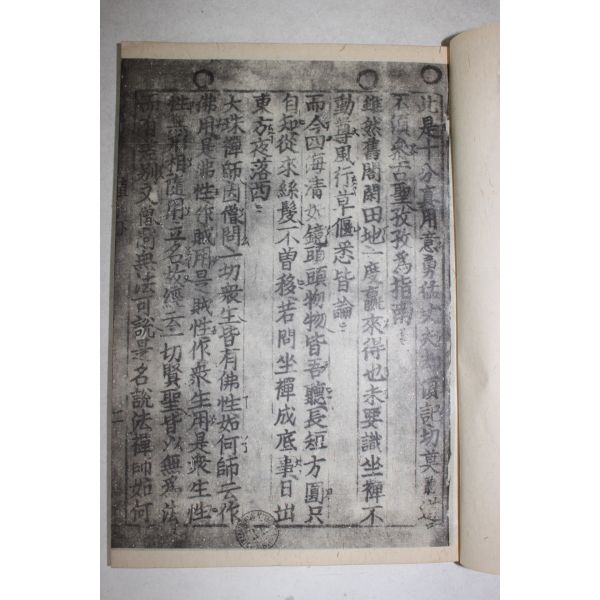 此是十分真用意勇猛丈夫却須記切莫
不須參古聖孜孜為指南
雖然舊閣閑田地一度贏來得也未要識坐禪不
動尊風行草偃悉皆論
而今四海清如鏡頭頭物物皆吾聽長短方圓只
自知從來絲髮不曾移若問坐禪成底事日出
東方夜落西
大珠禪師因僧問一切衆生皆有佛性如何師云作
佛用是佛性作賊用是賊性作衆生用是衆生性
性無形相隨用立名故經云一切賢聖皆以無爲法
而有差別又僧問無法可說是名說法禪師如何